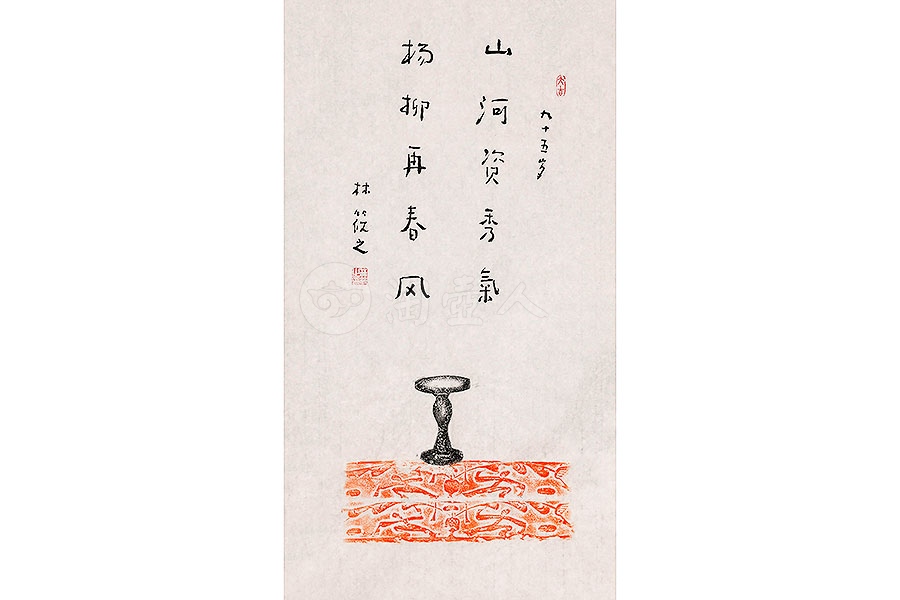 九十五岁
山河资秀氣
杨柳再春风
林筱之